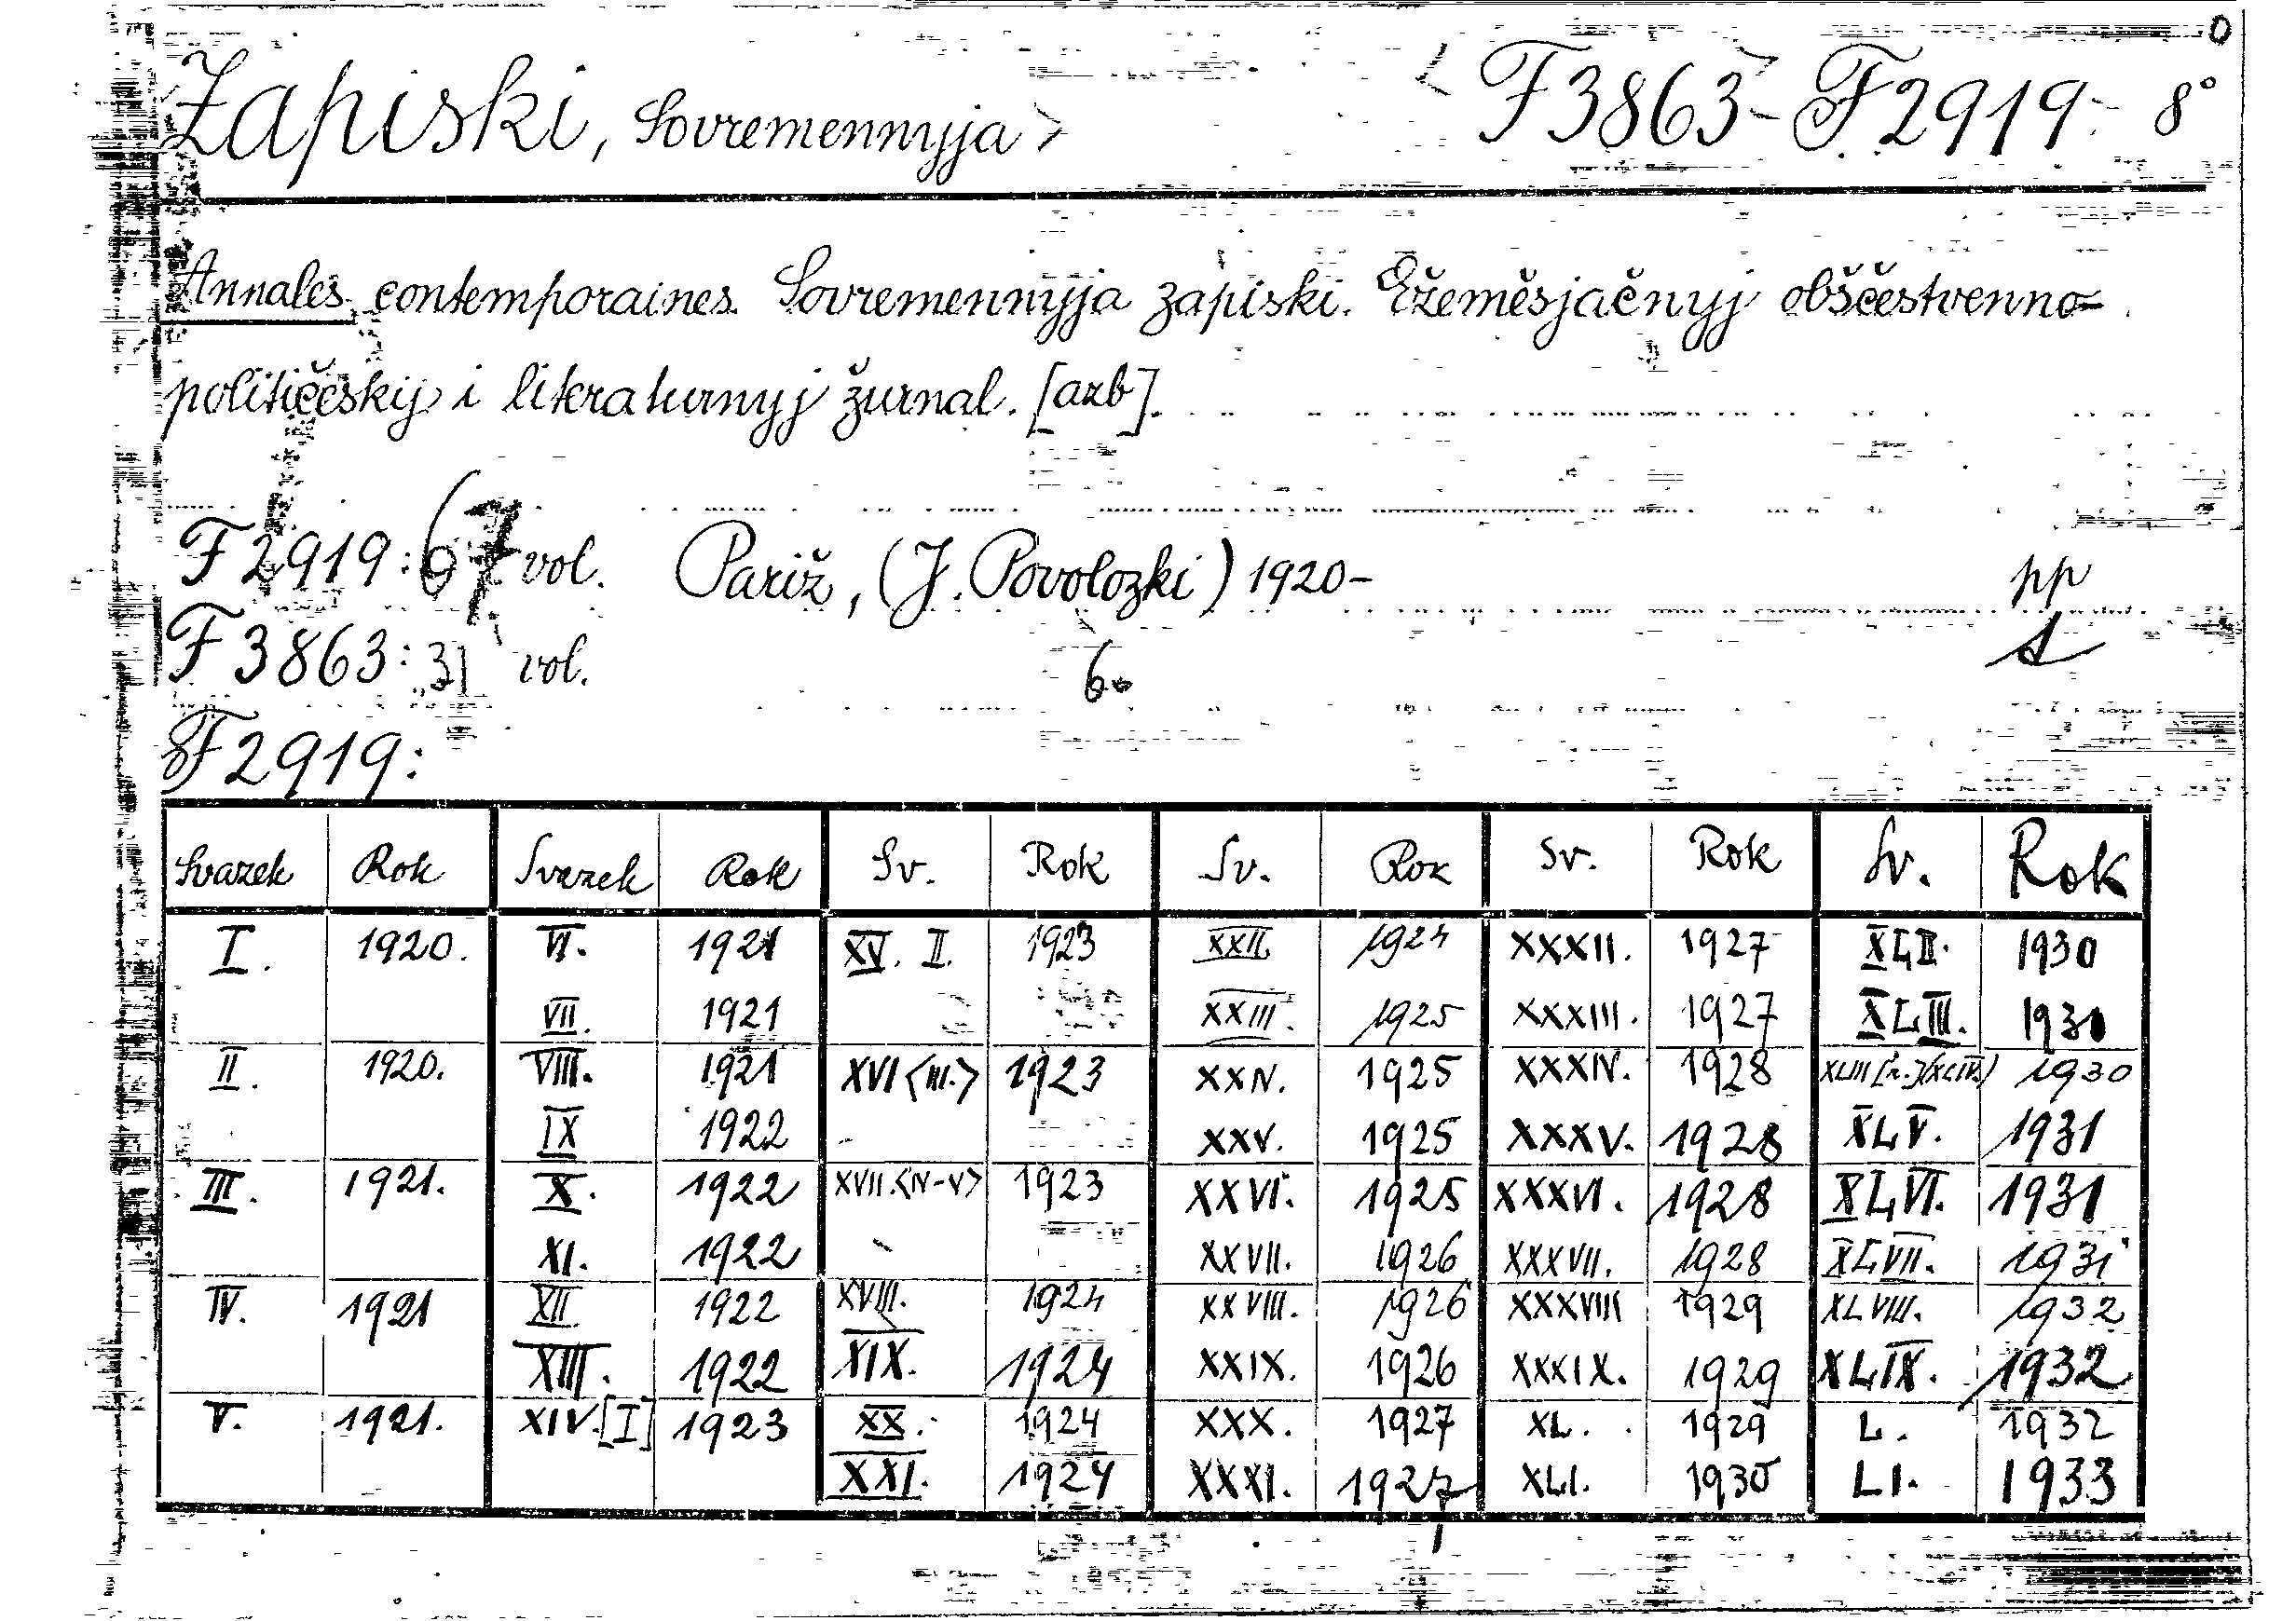 0
Zapiski, Sovremennyja > < F3863 - F2919: 8°
Annales contemporaines. Sovremennyja zapiski. Ěžeměsjačnyj obščestvenno-
političeskij i literaturnyj žurnal. [azb].
F 2919: 67 vol. Pariž, (J. Povolozki) 1920- pp
F 3863: 31 vol. 6.
F 2919:
Svazek Rok Svazek Rok Sv. Rok Sv. Rok Sv. Rok Sv. Rok
I. 1920. VI. 1921 XV. II. 1923 XXII. 1924 XXXII. 1927 XLII. 1930
VII. 1921 XXIII. 1925 XXXIII. 1927 XLIII. 1930
II. 1920. VIII. 1921 XVI <III.> 1923 XXIV. 1925 XXXIV. 1928 XLIII [r.](XLIV.) 1930
IX 1922 XXV. 1925 XXXV. 1928 XLV. 1931
III. 1921. X. 1922 XVII. <IV-V> 1923 XXVI. 1925 XXXVI. 1928 XLVI. 1931
XI. 1922 XXVII. 1926 XXXVII. 1928 XLVII. 1931
IV. 1921 XII 1922 XVIII. 1924 XXVIII. 1926 XXXVIII 1929 XLVIII. 1932
XIII. 1922 XIX. 1924 XXIX. 1926 XXXIX. 1929 XLIX. 1932
V. 1921. XIV. [I] 1923 XX. 1924 XXX. 1927 XL. 1929 L. 1932
XXI. 1924 XXXI. 1927 XLI. 1930 LI. 1933